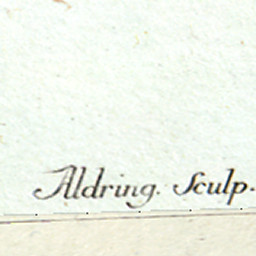 Aldring. Sculp.